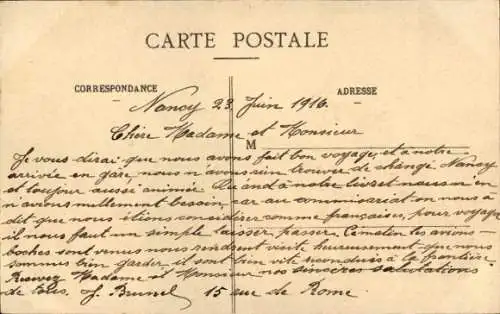 CARTE POSTALE
CORRESPONDANCE
ADRESSE
Nancy 23 Juin 1916
Chère Madame et Monsieur
M
Je vous dirai que nous avons fait bon voyage, et à notre
arrivée en gare, nous n'avons rien trouver de changé Nancy
et toujour aussi animée. Quand à notre livret nous n'en
n'avions nullement besoin, car au commissariat on nous a
dit que nous étions considérer comme françaises, pour voyage
il nous faut un simple laisser passer. Ce matin les avions
boches sont venus nous rendrent visite heureusement que nous
sommes bien garder, il sont bien vite à la frontière
Recevez Madame et Monsieur nos sincères salutations
de tous. J. Brunel 15 rue de Rome.